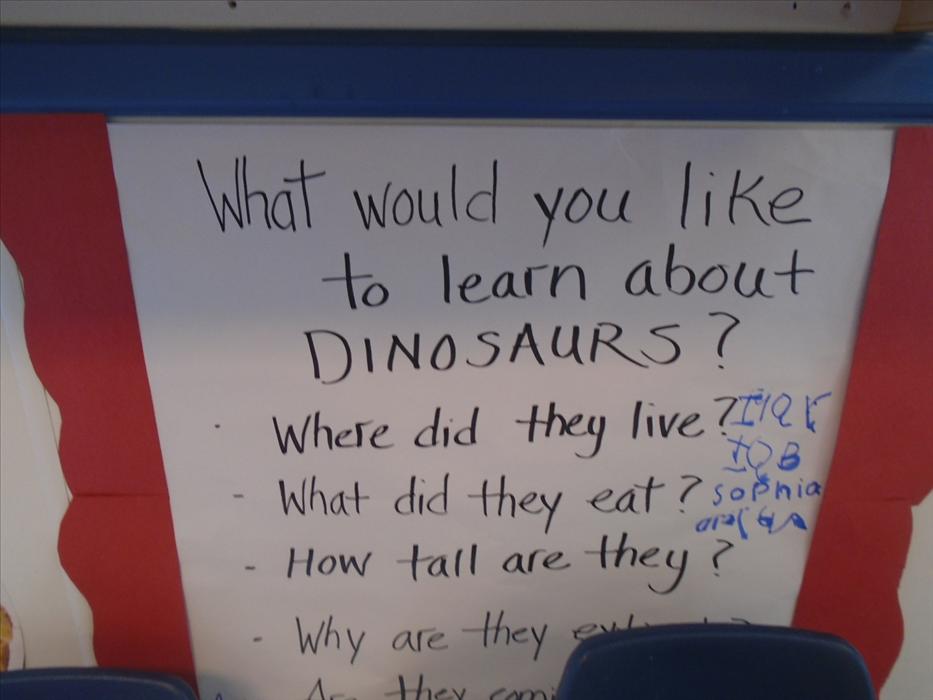 What would you like
to learn about
DINOSAURS?
· Where did they live?
- What did they eat? sophia
- How tall are they?
- Why are they
Are they